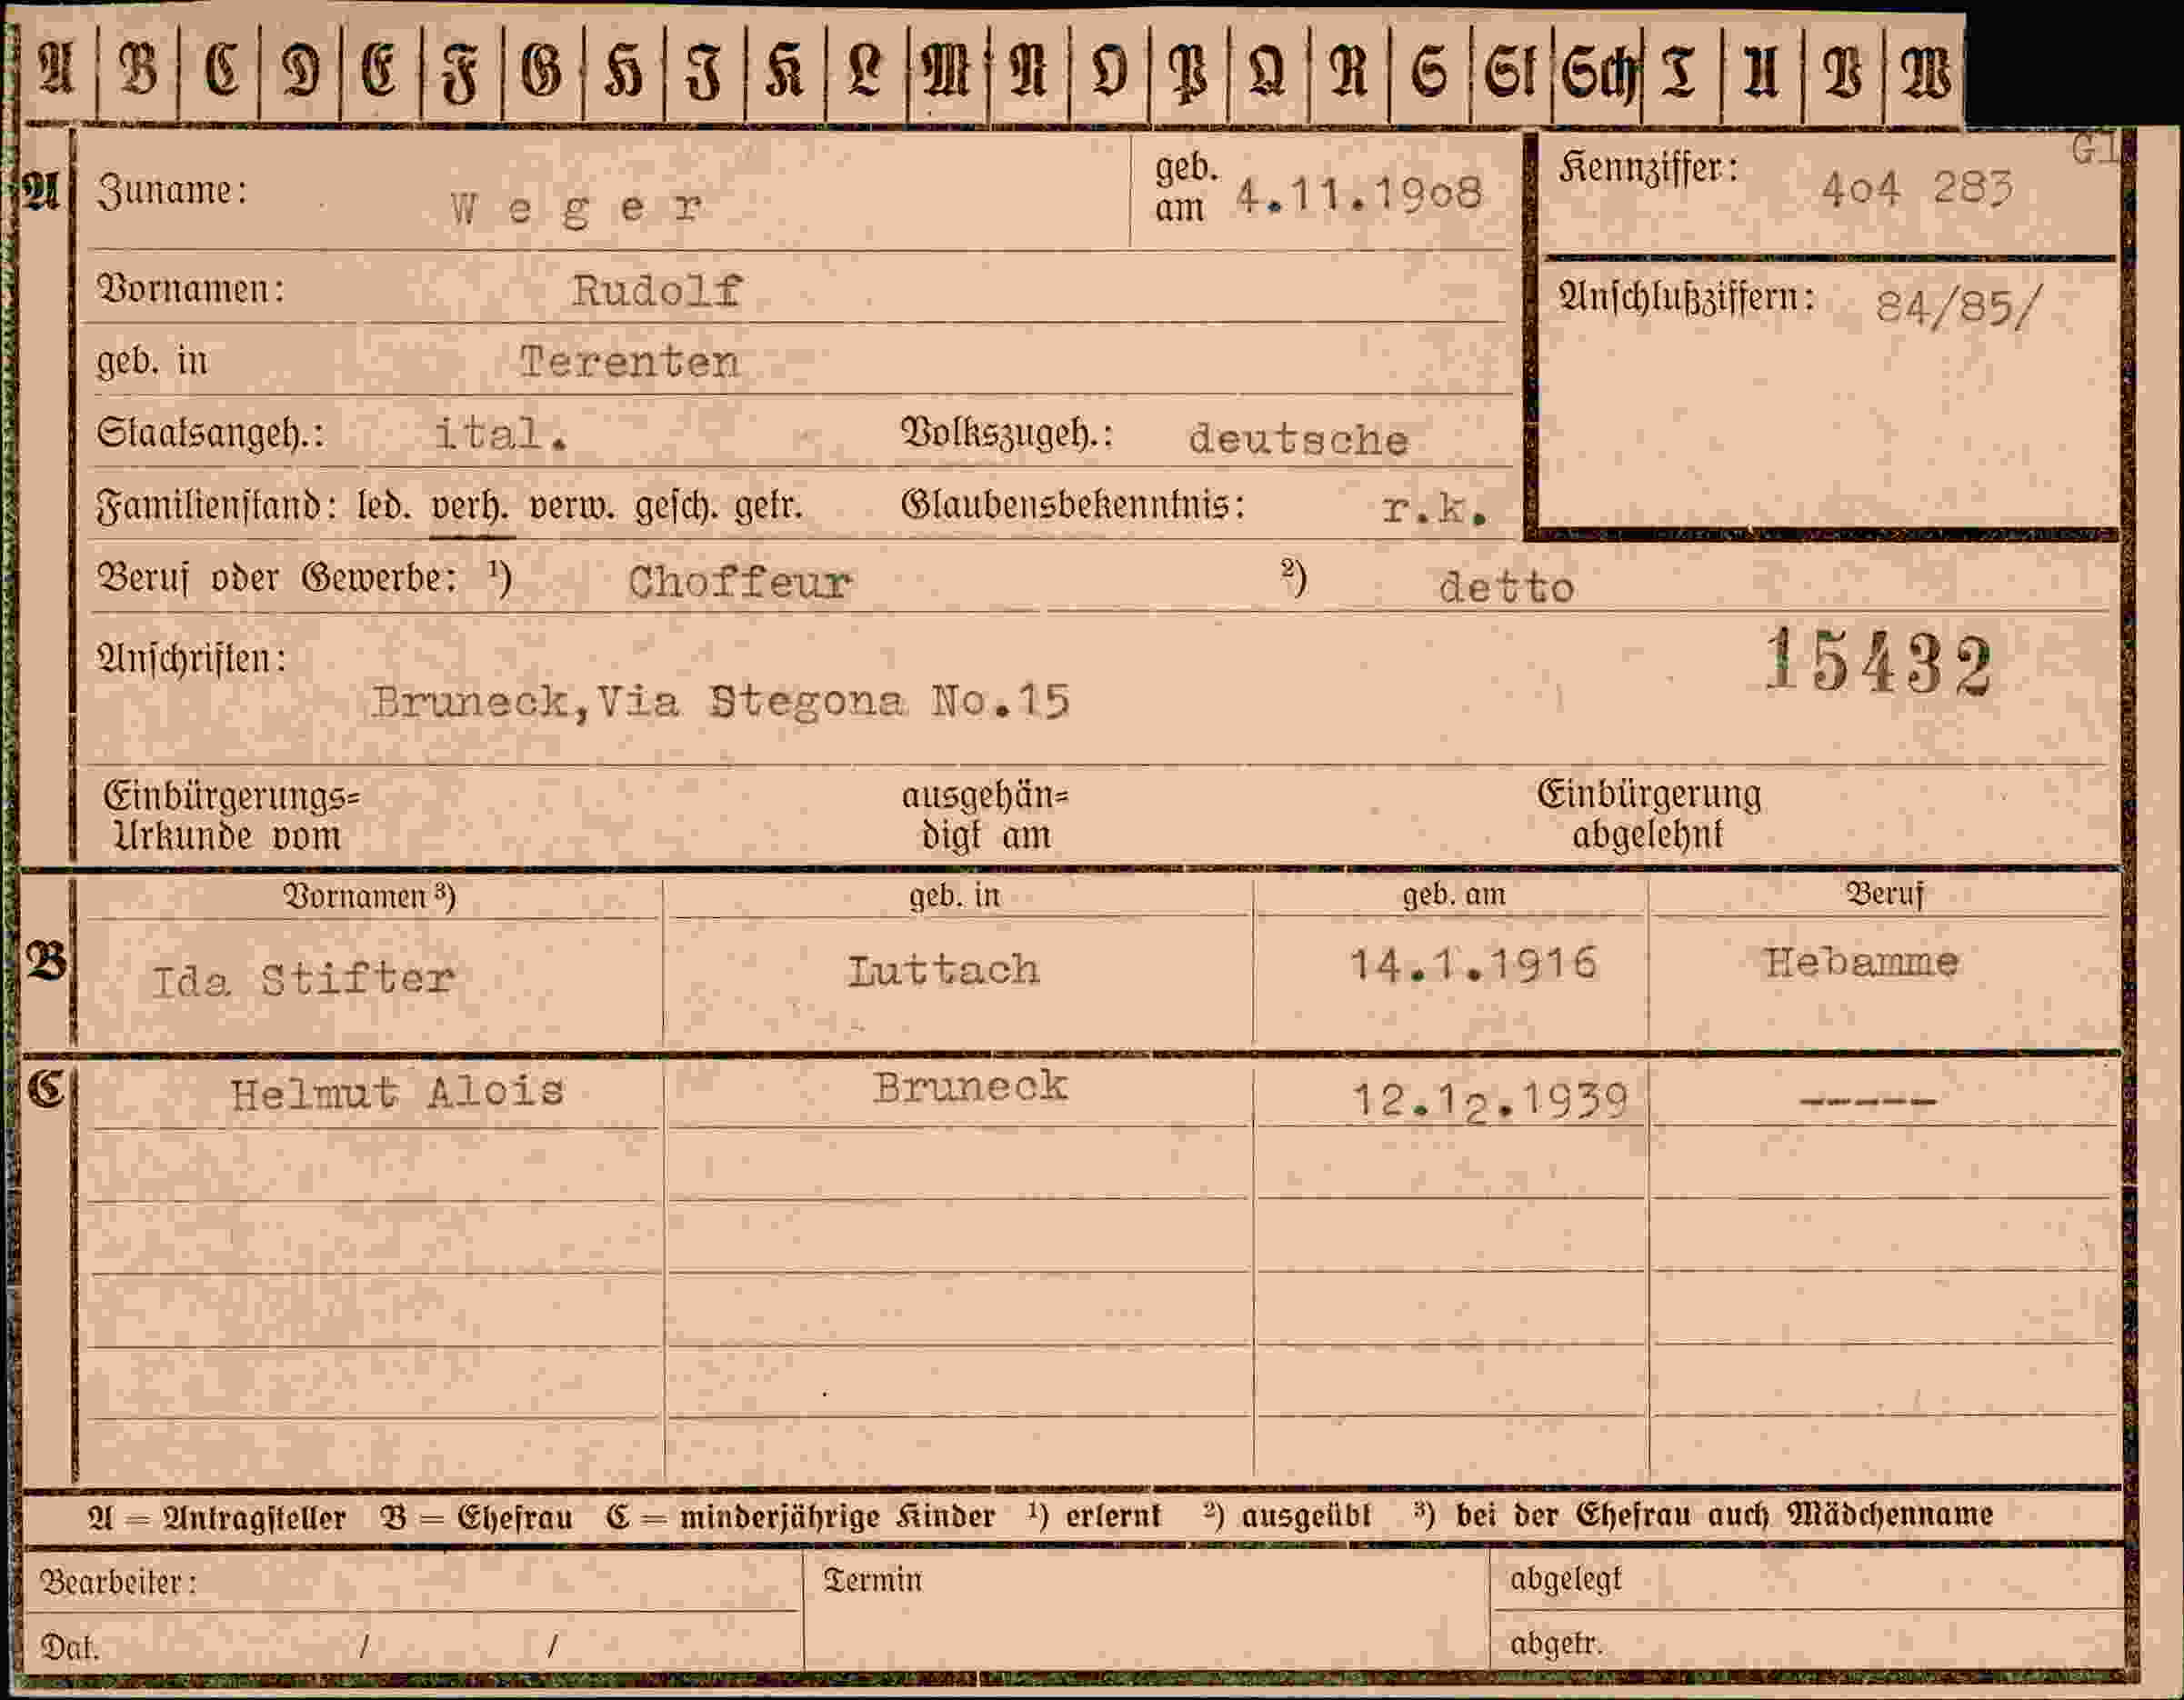 A B C D E F G H J K L M N O P Q R S St Sch T U V W
A Zuname: Weger geb. am 4.11.1908 Kennziffer: 404 283
Vornamen: Rudolf Anschlußziffern: 84/85/
geb. in Terenten
Staatsangeh.: ital. Volkszugeh.: deutsche
Familienstand: led. verh. verw. gesch. getr. Glaubensbekenntnis: r.k.
Beruf oder Gewerbe: 1) Choffeur 2) detto
Anschriften: 15432
Bruneck,Via Stegona No.15
Einbürgerungs= ausgehän= Einbürgerung
Urkunde vom digt am abgelehnt
Vornamen 3) geb. in geb. am Beruf
B Ida Stifter Luttach 14.1.1916 Hebamme
C Helmut Alois Bruneck 12.12.1939 -----
A = Antragsteller B = Ehefrau C = minderjährige Kinder 1) erlernt 2) ausgeübt 3) bei der Ehefrau auch Mädchenname
Bearbeiter: Termin abgelegt
Dat. / / abgetr.